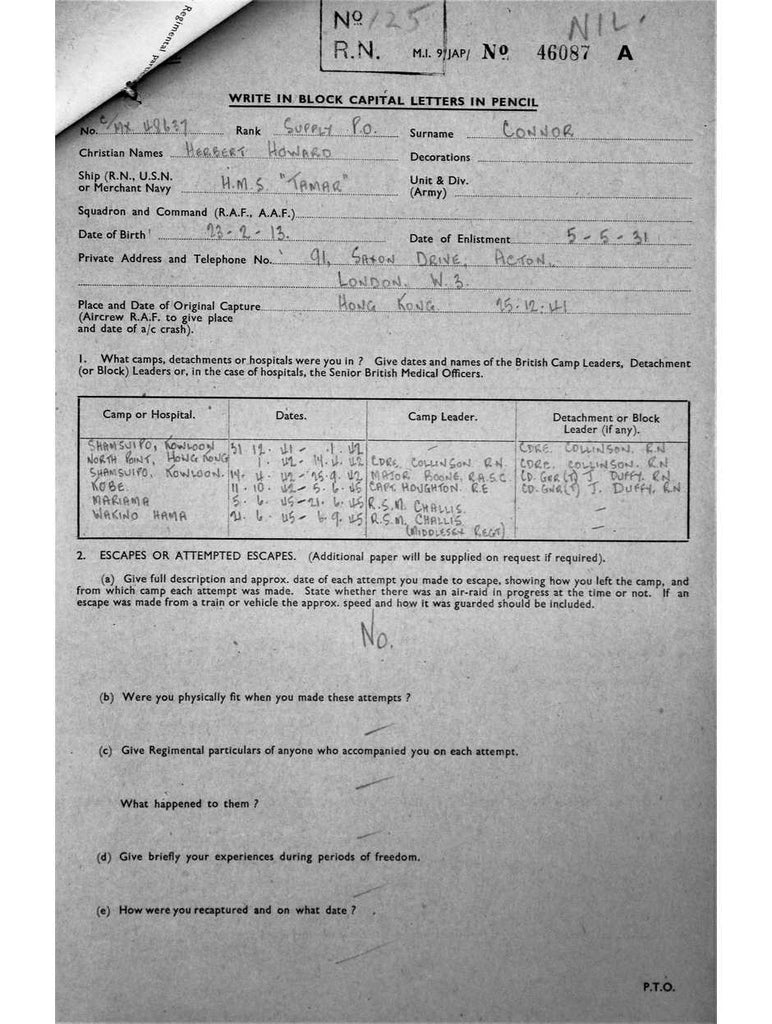 Regimental Parti
No 125
R.N.
NIL.
M.I. 9/JAP/ No 46087 A
WRITE IN BLOCK CAPITAL LETTERS IN PENCIL
No. C/MX 48637 Rank SUPPLY P.O. Surname CONNOR
Christian Names HERBERT HOWARD Decorations
Ship (R.N., U.S.N. or Merchant Navy H.M.S "TAMAR" Unit & Div. (Army)
Squadron and Command (R.A.F., A.A.F.)
Date of Birth 23-2-13. Date of Enlistment 5-5-31
Private Address and Telephone No. 91, SAXON DRIVE, ACTON,
LONDON. W.3.
Place and Date of Original Capture HONG KONG 25.12.41
(Aircrew R.A.F. to give place
and date of a/c crash).
1. What camps, detachments or hospitals were you in ? Give dates and names of the British Camp Leaders, Detachment
(or Block) Leaders or, in the case of hospitals, the Senior British Medical Officers.
Camp or Hospital. Dates. Camp Leader. Detachment or Block Leader (if any).
SHAMSUIPO, KOWLOON 31 12. 41 - .1.42 — CDRE. COLLINSON. R.N
NORTH POINT, HONG KONG 1. 42 - 14.4.42 CDRE. COLLINSON R.N. CDRE. COLLINSON. R.N
SHAMSUIPO, KOWLOON. 14. 4. 42 - 25.9.42 MAJOR BOONE, R.A.S.C. CD. GNR(T) J. DUFFY. RN
KOBE 11. 10. 42 - 5.6.45 CAPT. HOUGHTON. R.E CD. GNR(T) J. DUFFY. RN
MARIAMA 5. 6. 45 - 21.6.45 R.S.M. CHALLIS. —
WAKINO HAMA 21. 6. 45 - 6.9.45 R.S.M. CHALLIS. —
(MIDDLESEX REGT)
2. ESCAPES OR ATTEMPTED ESCAPES. (Additional paper will be supplied on request if required).
(a) Give full description and approx. date of each attempt you made to escape, showing how you left the camp, and
from which camp each attempt was made. State whether there was an air-raid in progress at the time or not. If an
escape was made from a train or vehicle the approx. speed and how it was guarded should be included.
No.
(b) Were you physically fit when you made these attempts ?
—
(c) Give Regimental particulars of anyone who accompanied you on each attempt.
—
What happened to them ?
—
(d) Give briefly your experiences during periods of freedom.
—
(e) How were you recaptured and on what date ?
—
P.T.O.